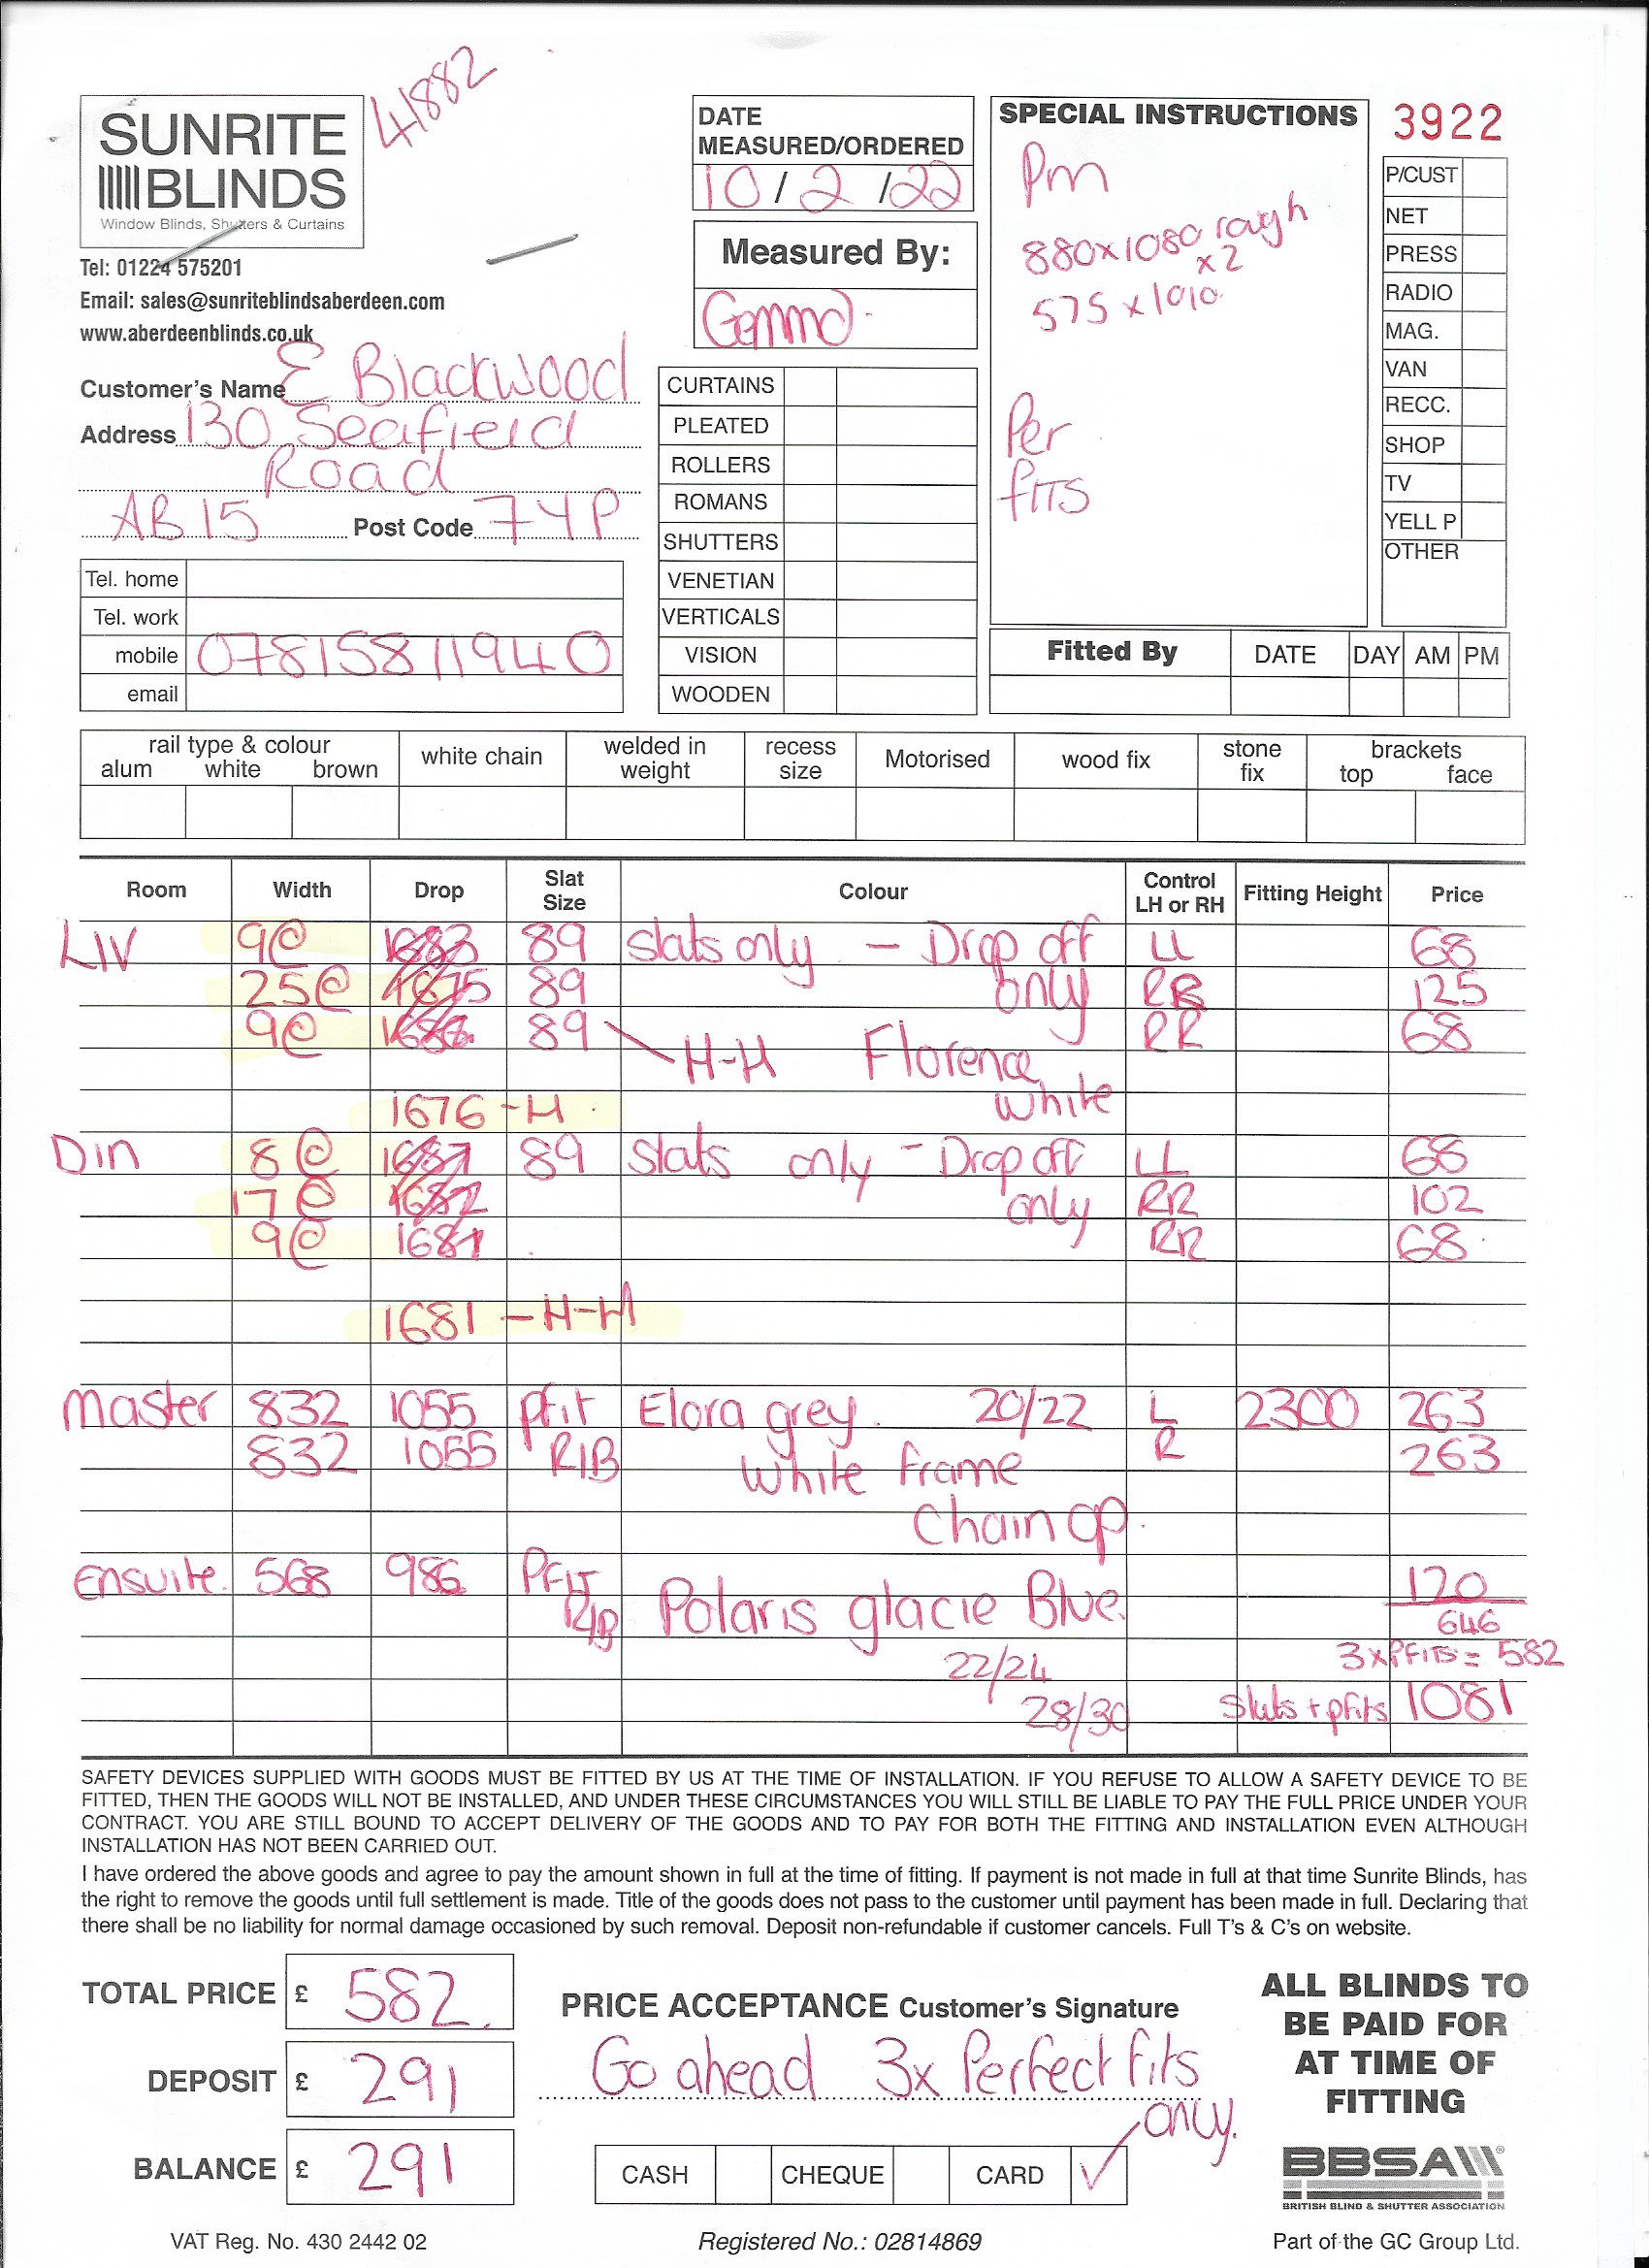 41882
SUNRITE
BLINDS
Window Blinds, Shutters & Curtains
Tel: 01224 575201
Email: sales@sunriteblindsaberdeen.com
www.aberdeenblinds.co.uk
Customer's Name E Blackwood
Address 130 Seafield
Road
AB15 Post Code 7YP
Tel. home
Tel. work
mobile 07815811940
email
DATE
MEASURED/ORDERED
10/2/22
Measured By:
Gemma
CURTAINS
PLEATED
ROLLERS
ROMANS
SHUTTERS
VENETIAN
VERTICALS
VISION
WOODEN
SPECIAL INSTRUCTIONS
Pm
880x1080 rough
x2
575 x 1010
Per
fits
3922
P/CUST
NET
PRESS
RADIO
MAG.
VAN
RECC.
SHOP
TV
YELL P
OTHER
Fitted By DATE DAY AM PM
rail type & colour white chain welded in weight recess size Motorised wood fix stone fix brackets
alum white brown top face
Room Width Drop Slat Size Colour Control LH or RH Fitting Height Price
LIV 9@ 1683 89 slats only - Drop off LL 68
25@ 1675 89 only RR 125
9@ 89 RR 68
H-H Florence
1676 - H white
Din 8@ 1687 89 Slats only - Drop off LL 68
17@ 1682 only RR 102
9@ 1681 RR 68
1681 - H-H
Master 832 1055 pfit Elora grey 20/22 L 2300 263
832 1055 R/B White frame R 263
Chain op.
Ensuite 568 986 PFIT 120
R/B Polaris glacie Blue 646
22/24 3xPFITS = 582
28/30 Slats + pfits 1081
SAFETY DEVICES SUPPLIED WITH GOODS MUST BE FITTED BY US AT THE TIME OF INSTALLATION. IF YOU REFUSE TO ALLOW A SAFETY DEVICE TO BE
FITTED, THEN THE GOODS WILL NOT BE INSTALLED, AND UNDER THESE CIRCUMSTANCES YOU WILL STILL BE LIABLE TO PAY THE FULL PRICE UNDER YOUR
CONTRACT. YOU ARE STILL BOUND TO ACCEPT DELIVERY OF THE GOODS AND TO PAY FOR BOTH THE FITTING AND INSTALLATION EVEN ALTHOUGH
INSTALLATION HAS NOT BEEN CARRIED OUT.
I have ordered the above goods and agree to pay the amount shown in full at the time of fitting. If payment is not made in full at that time Sunrite Blinds, has
the right to remove the goods until full settlement is made. Title of the goods does not pass to the customer until payment has been made in full. Declaring that
there shall be no liability for normal damage occasioned by such removal. Deposit non-refundable if customer cancels. Full T's & C's on website.
TOTAL PRICE £ 582
DEPOSIT £ 291
BALANCE £ 291
PRICE ACCEPTANCE Customer's Signature
Go ahead 3x Perfect fits
only.
CASH CHEQUE CARD ✓
ALL BLINDS TO
BE PAID FOR
AT TIME OF
FITTING
BBSA
BRITISH BLIND & SHUTTER ASSOCIATION
VAT Reg. No. 430 2442 02
Registered No.: 02814869
Part of the GC Group Ltd.